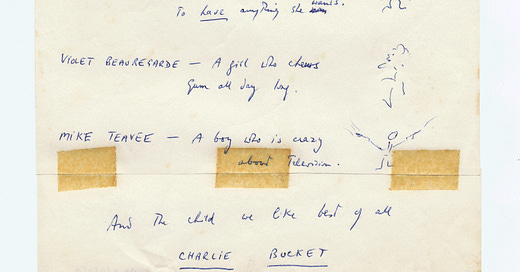 To have anything she wants.
VIOLET BEAUREGARDE — A girl who chews
gum all day long.
MIKE TEAVEE — A boy who is crazy
about Television.
And the child we like best of all
CHARLIE BUCKET